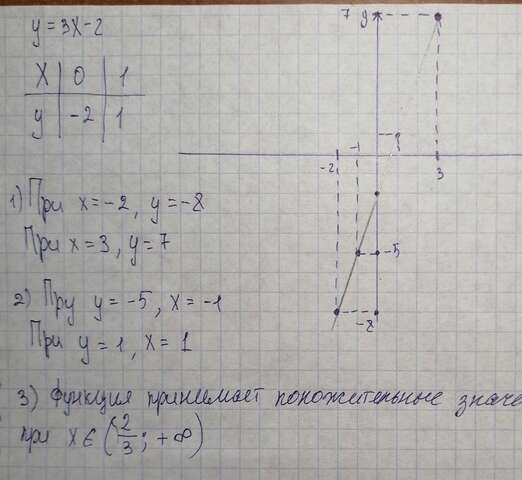 y=3x-2
x 0 1
y -2 1
7 y
-2 -1 1 3
-5
-8
1) При x=-2, y=-8
При x=3, y=7
2) Пру y=-5, x=-1
При y=1, x=1
3) Функция принимает положительные значе
при x∈(2/3; +∞)